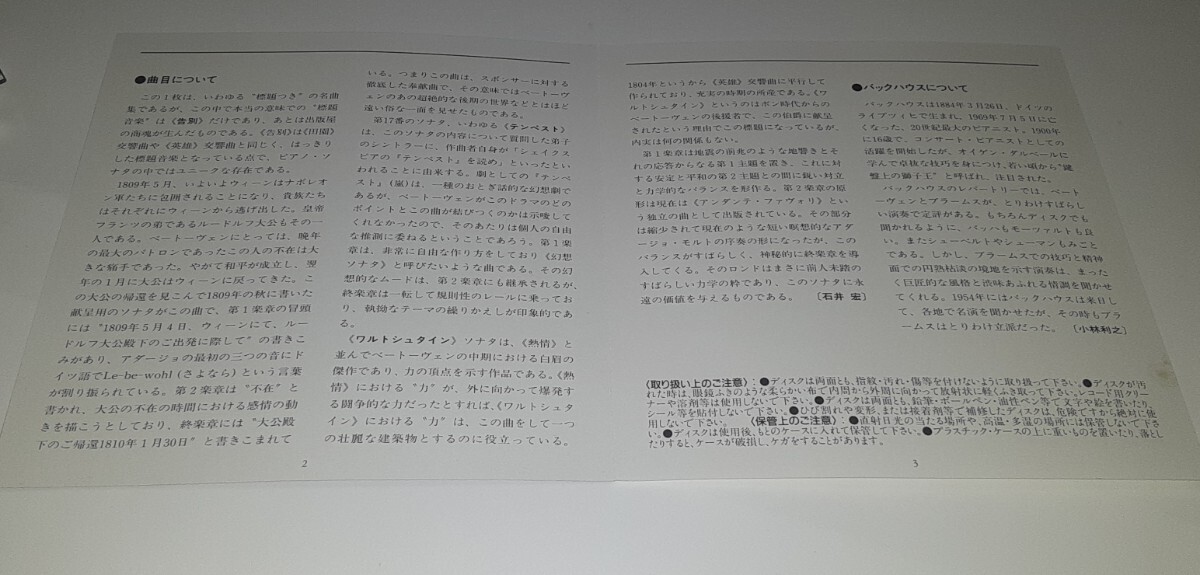 ●曲目について
この1枚は、いわゆる“標題つき”の名曲
集であるが、この中で本当の意味での“標題
音楽”は《告別》だけであり、あとは出版屋
の商魂が生んだものである。《告別》は《田園》
交響曲や《英雄》交響曲と同じく、はっきり
した標題音楽となっている点で、ピアノ・ソ
ナタの中ではユニークな存在である。
1809年5月、いよいよウィーンはナポレオ
ン軍たちに包囲されることになり、貴族たち
はそれぞれにウィーンから逃げ出した。皇帝
フランツの弟であるルードルフ大公もその一
人である。ベートーヴェンにとっては、晩年
の最大のパトロンであったこの人の不在は大
きな痛手であった。やがて和平が成立し、翌
年の1月に大公はウィーンに戻ってきた。こ
の大公の帰還を見こんで1809年の秋に書いた
献呈用のソナタがこの曲で、第1楽章の冒頭
には“1809年5月4日、ウィーンにて、ルー
ドルフ大公殿下のご出発に際して”の書きこ
みがあり、アダージョの最初の三つの音にド
イツ語でLe-be-wohl(さよなら)という言葉
が割り振られている。第2楽章は“不在”と
書かれ、大公の不在の時間における感情の動
きを描こうとしており、終楽章には“大公殿
下のご帰還1810年1月30日”と書きこまれて
いる。つまりこの曲は、スポンサーに対する
徹底した奉献曲で、その意味ではベートーヴ
ェンのあの超絶的な後期の世界などとはほど
遠い俗な一面を見せたものである。
第17番のソナタ、いわゆる《テンペスト》
は、このソナタの内容について質問した弟子
のシントラーに、作曲者自身が「シェイクス
ピアの『テンペスト』を読め」といったとい
われることに由来する。劇としての『テンペ
スト』(嵐)は、一種のおとぎ話的な幻想劇で
あるが、ベートーヴェンがこのドラマのどの
ポイントとこの曲が結びつくのかは示唆して
くれなかったので、そのあたりは個人の自由
な推測に委ねるということであろう。第1楽
章は、非常に自由な作り方をしており《幻想
ソナタ》と呼びたいような曲である。その幻
想的なムードは、第2楽章にも継承されるが、
終楽章は一転して規則性のレールに乗ってお
り、執拗なテーマの繰りかえしが印象的であ
る。
《ワルトシュタイン》ソナタは、《熱情》と
並んでベートーヴェンの中期における白眉の
傑作であり、力の頂点を示す作品である。《熱
情》における“力”が、外に向かって爆発す
る闘争的な力だったとすれば、《ワルトシュタ
イン》における“力”は、この曲をして一つ
の壮麗な建築物とするのに役立っている。
2
1804年というから《英雄》交響曲に平行して
作られており、充実の時期の所産である。《ワ
ルトシュタイン》というのはボン時代からの
ベートーヴェンの後援者で、この伯爵に献呈
されたという理由でこの標題になっているが、
内実は何の関係もない。
第1楽章は地震の前兆のような地響きとそ
れの応答からなる第1主題を置き、これに対
する安定と平和の第2主題との間に鋭い対立
と力学的なバランスを形作る。第2楽章の原
形は現在は《アンダンテ・ファヴォリ》とい
う独立の曲として出版されている。その部分
は縮少されて現在のような短い瞑想的なアダ
ージョ・モルトの序奏の形になったが、この
バランスがすばらしく、神秘的に終楽章を導
入してくる。そのロンドはまさに前人未踏の
すばらしい力学の粋であり、このソナタに永
遠の価値を与えるものである。 〔石井 宏〕
●バックハウスについて
バックハウスは1884年3月26日、ドイツの
ライプツィヒで生まれ、1969年7月5日に亡
くなった、20世紀最大のピアニスト。1900年
に16歳で、コンサート・ピアニストとしての
活躍を開始したが、オイゲン・ダルベールに
学んで卓抜な技巧を身につけ、若い頃から“鍵
盤上の獅子王”と呼ばれ、注目された。
バックハウスのレパートリーでは、ベート
ーヴェンとブラームスが、とりわけすばらし
い演奏で定評がある。もちろんディスクでも
聞かれるように、バッハもモーツァルトも良
い。またシューベルトやシューマンもみごと
である。しかし、ブラームスでの技巧と精神
面での円熟枯淡の境地を示す演奏は、まった
く巨匠的な風格と渋味あふれる情調を聞かせ
てくれる。1954年にはバックハウスは来日し
て、各地で名演を聞かせたが、その時もブラ
ームスはとりわけ立派だった。 〔小林利之〕
〈取り扱い上のご注意〉:●ディスクは両面とも、指紋・汚れ・傷等を付けないように取り扱って下さい。●ディスクが汚
れた時は、眼鏡ふきのような柔らかい布で内周から外周に向かって放射状に軽くふき取って下さい。レコード用クリー
ナーや溶剤等は使用しないで下さい。●ディスクは両面とも、鉛筆・ボールペン・油性ペン等で文字や絵を書いたり、
シール等を貼付しないで下さい。●ひび割れや変形、または接着剤等で補修したディスクは、危険ですから絶対に使
用しないで下さい。 〈保管上のご注意〉:●直射日光の当たる場所や、高温・多湿の場所には保管しないで下さ
い。●ディスクは使用後、もとのケースに入れて保管して下さい。●プラスチック・ケースの上に重いものを置いたり、落とし
たりすると、ケースが破損し、ケガをすることがあります。
3